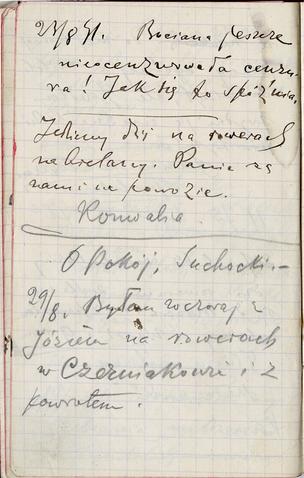 23/8 41. Bociana jeszcze
nieocenzurowała cenzu-
ra! Jak się to spóźnia.
Jedziemy dziś na rowerach
na bielany. Panie za
nami na powozie.
Konwalia
O Pokój, Suchocki.-
29/8. Byłam wczoraj z
Józiem na rowerach
w Czerniakowie i z
powrotem.